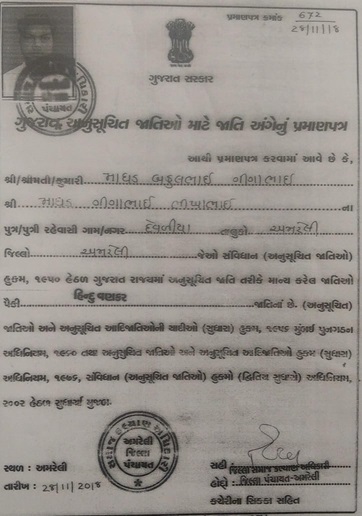 પ્રમાણપત્ર ક્રમાંક 672
28/11/18
ગુજરાત સરકાર
ગુજરાત અનુસૂચિત જાતિઓ માટે જાતિ અંગેનું પ્રમાણપત્ર
આથી પ્રમાણપત્ર કરવામાં આવે છે કે,
શ્રી/શ્રીમતી/કુમારી માધડ બકુલભાઈ ગીગાભાઈ
શ્રી માધડ ગીગાભાઈ ભીખાભાઈ ના
પુત્ર/પુત્રી રહેવાસી ગામ/નગર દેવળીયા તાલુકો અમરેલી
જિલ્લો અમરેલી જેઓ સંવિધાન (અનુસૂચિત જાતિઓ)
હુકમ, ૧૯૫૦ હેઠળ ગુજરાત રાજ્યમાં અનુસૂચિત જાતિ તરીકે માન્ય કરેલ જાતિઓ
પૈકી હિન્દુ વણકર જાતિનાં છે. (અનુસૂચિત)
જાતિઓ અને અનુસૂચિત આદિજાતિઓની યાદીઓ (સુધારા) હુકમ, ૧૯૫૬ મુંબઈ પુનર્ગઠન
અધિનિયમ, ૧૯૬૦ તથા અનુસૂચિત જાતિઓ અને અનુસૂચિત આદિજાતિઓ હુકમ (સુધારા)
અધિનિયમ, ૧૯૭૬, સંવિધાન (અનુસૂચિત જાતિઓ) હુકમો (દ્વિતિય સુધારો) અધિનિયમ,
૨૦૦૨ હેઠળ સુધાર્યા મુજબ.
સમાજ કલ્યાણ અધિકારી
અમરેલી
જિલ્લા
પંચાયત
સ્થળ : અમરેલી
તારીખ : 28/11/2018
સહી :
જિલ્લા સમાજ કલ્યાણ અધિકારી
હોદ્દો : જિલ્લા પંચાયત-અમરેલી
કચેરીના સિક્કા સહિત